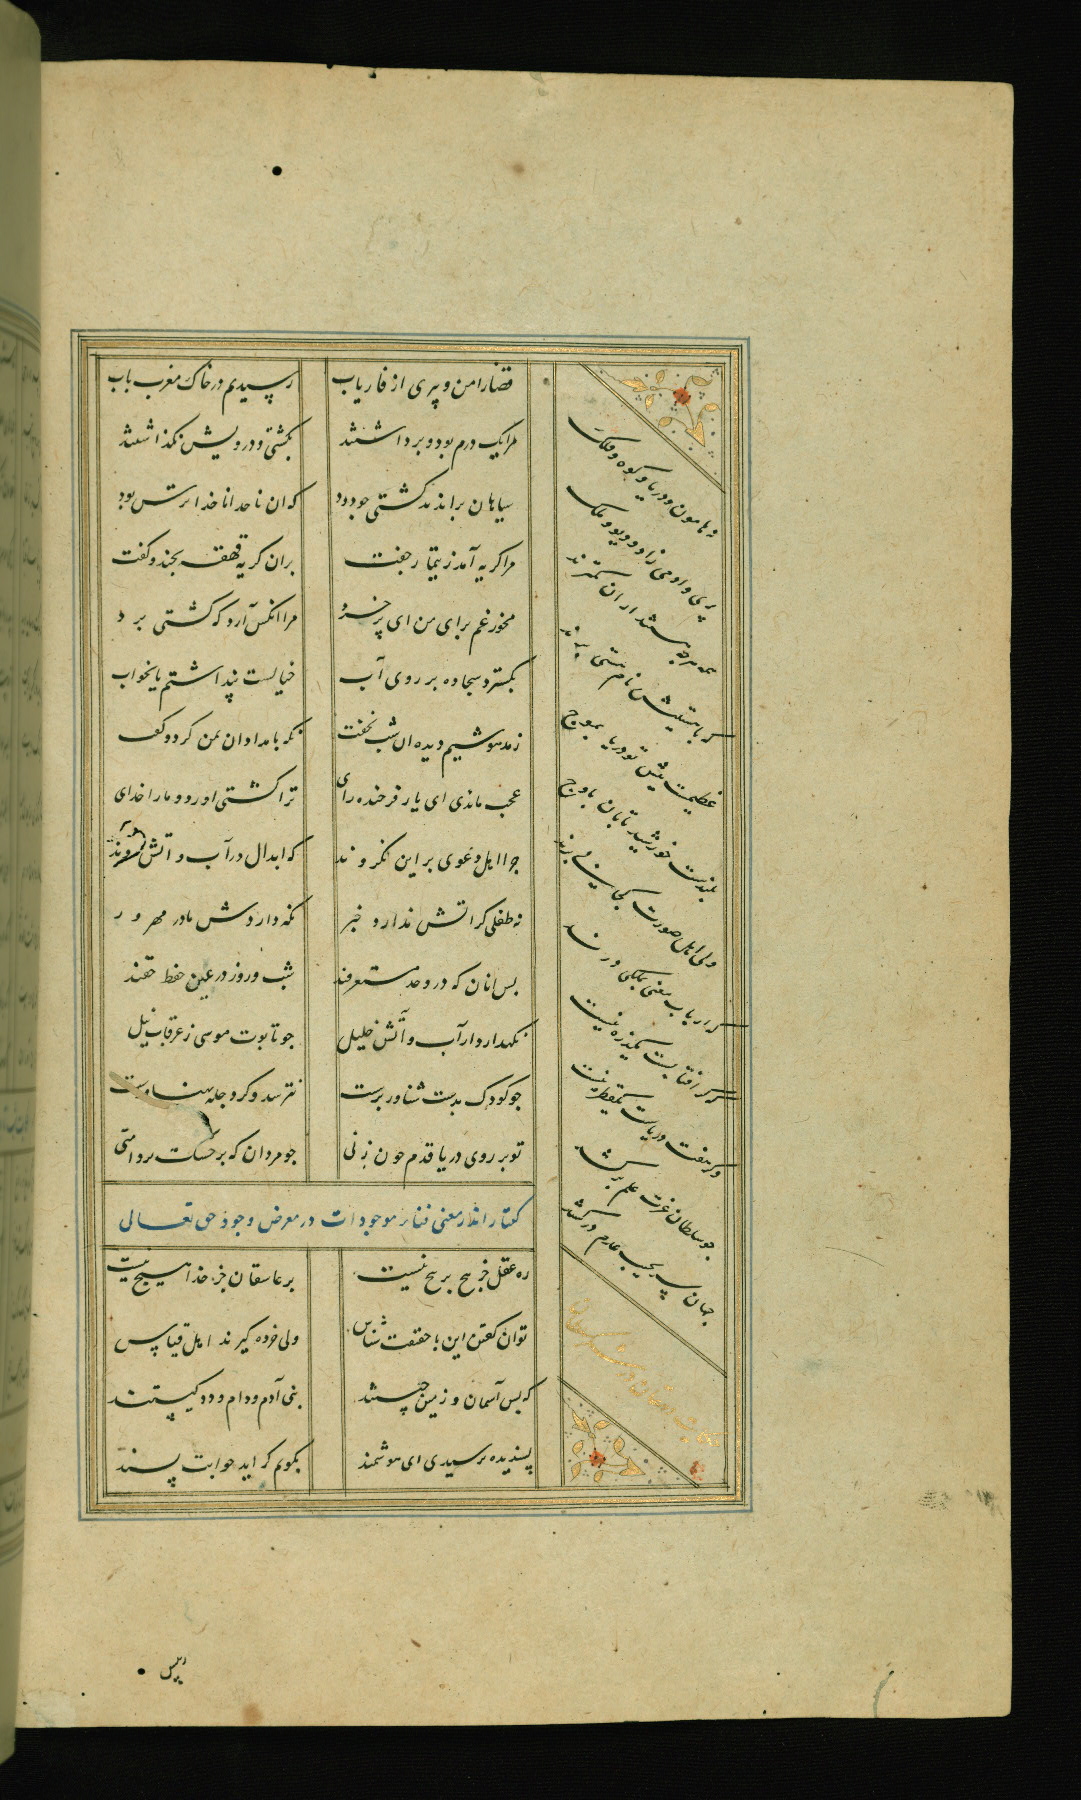 قضا را من و پیری از فاریاب رسیدیم در خاک مغرب باب
مرا یک درم بود و برداشتند بکشتی و درویش نکذاشتند
سیاهان براندند کشتی جو دود که ان ناخدا ناخدا ترس بود
مرا کریه آمد ز تیمار جفت بران کریه قهقهه بخندید و کفت
مخور غم برای من ای پر خرد مرا انکس آرد که کشتی برد
بکسترد سجاده بر روی آب خیالست پنداشتم یا بخواب
ز مدهوشیم دیده ان شب نخفت نکه بامدادان بمن کرد و کفت
عجب ماندی ای یار فرخنده رای ترا کشتی اورد و ما را خدای
جرا اهل دعوی برین نکروند که ابدال در آب و اتش روند
نه طفلی کز اتش ندارد خبر نکه داردش مادر مهرور
بس انان که در وجد مستغرقند شب و روز در عین حفظ حقند
نکهدارد از آب و آتش خلیل جو تابوت موسی ز غرقاب نیل
جو کودک بدست شناور برست نترسد وکر دجله پهناورست
تو بر روی دریا قدم جون زنی جو مردان که بر خشک تردامنی
کفتار اندر معنی فناء موجودات در معرض وجود حق تعالی
ره عقل جز پیچ بر پیچ نیست بر عاشقان جز خدا هیچ نیست
توان کفتن این با حقیقت شناس ولی خرده کیرند اهل قیاس
که پس آسمان و زمین چیستند بنی آدم و دام و دد کیستند
پسندیده پرسیدی ای هوشمند بکویم کر اید جوابت پسند
و هامون و دریا و کوه و فلک
پری و ادمی زاد و دیو و ملک
همه هرچه هستند از ان کمترند
که با هستیش نام هستی برند
عظیمست پیش تو دریا بموج
بلندست خورشید تابان باوج
ولی اهل صورت کجا پی برند
که ارباب معنی بملکی درند
که کر افتابست یکذره نیست
وکر هفت دریاست یکقطره نیست
جو سلطان عزت علم برکشد
جهان سر بجیب عدم درکشد
رییس